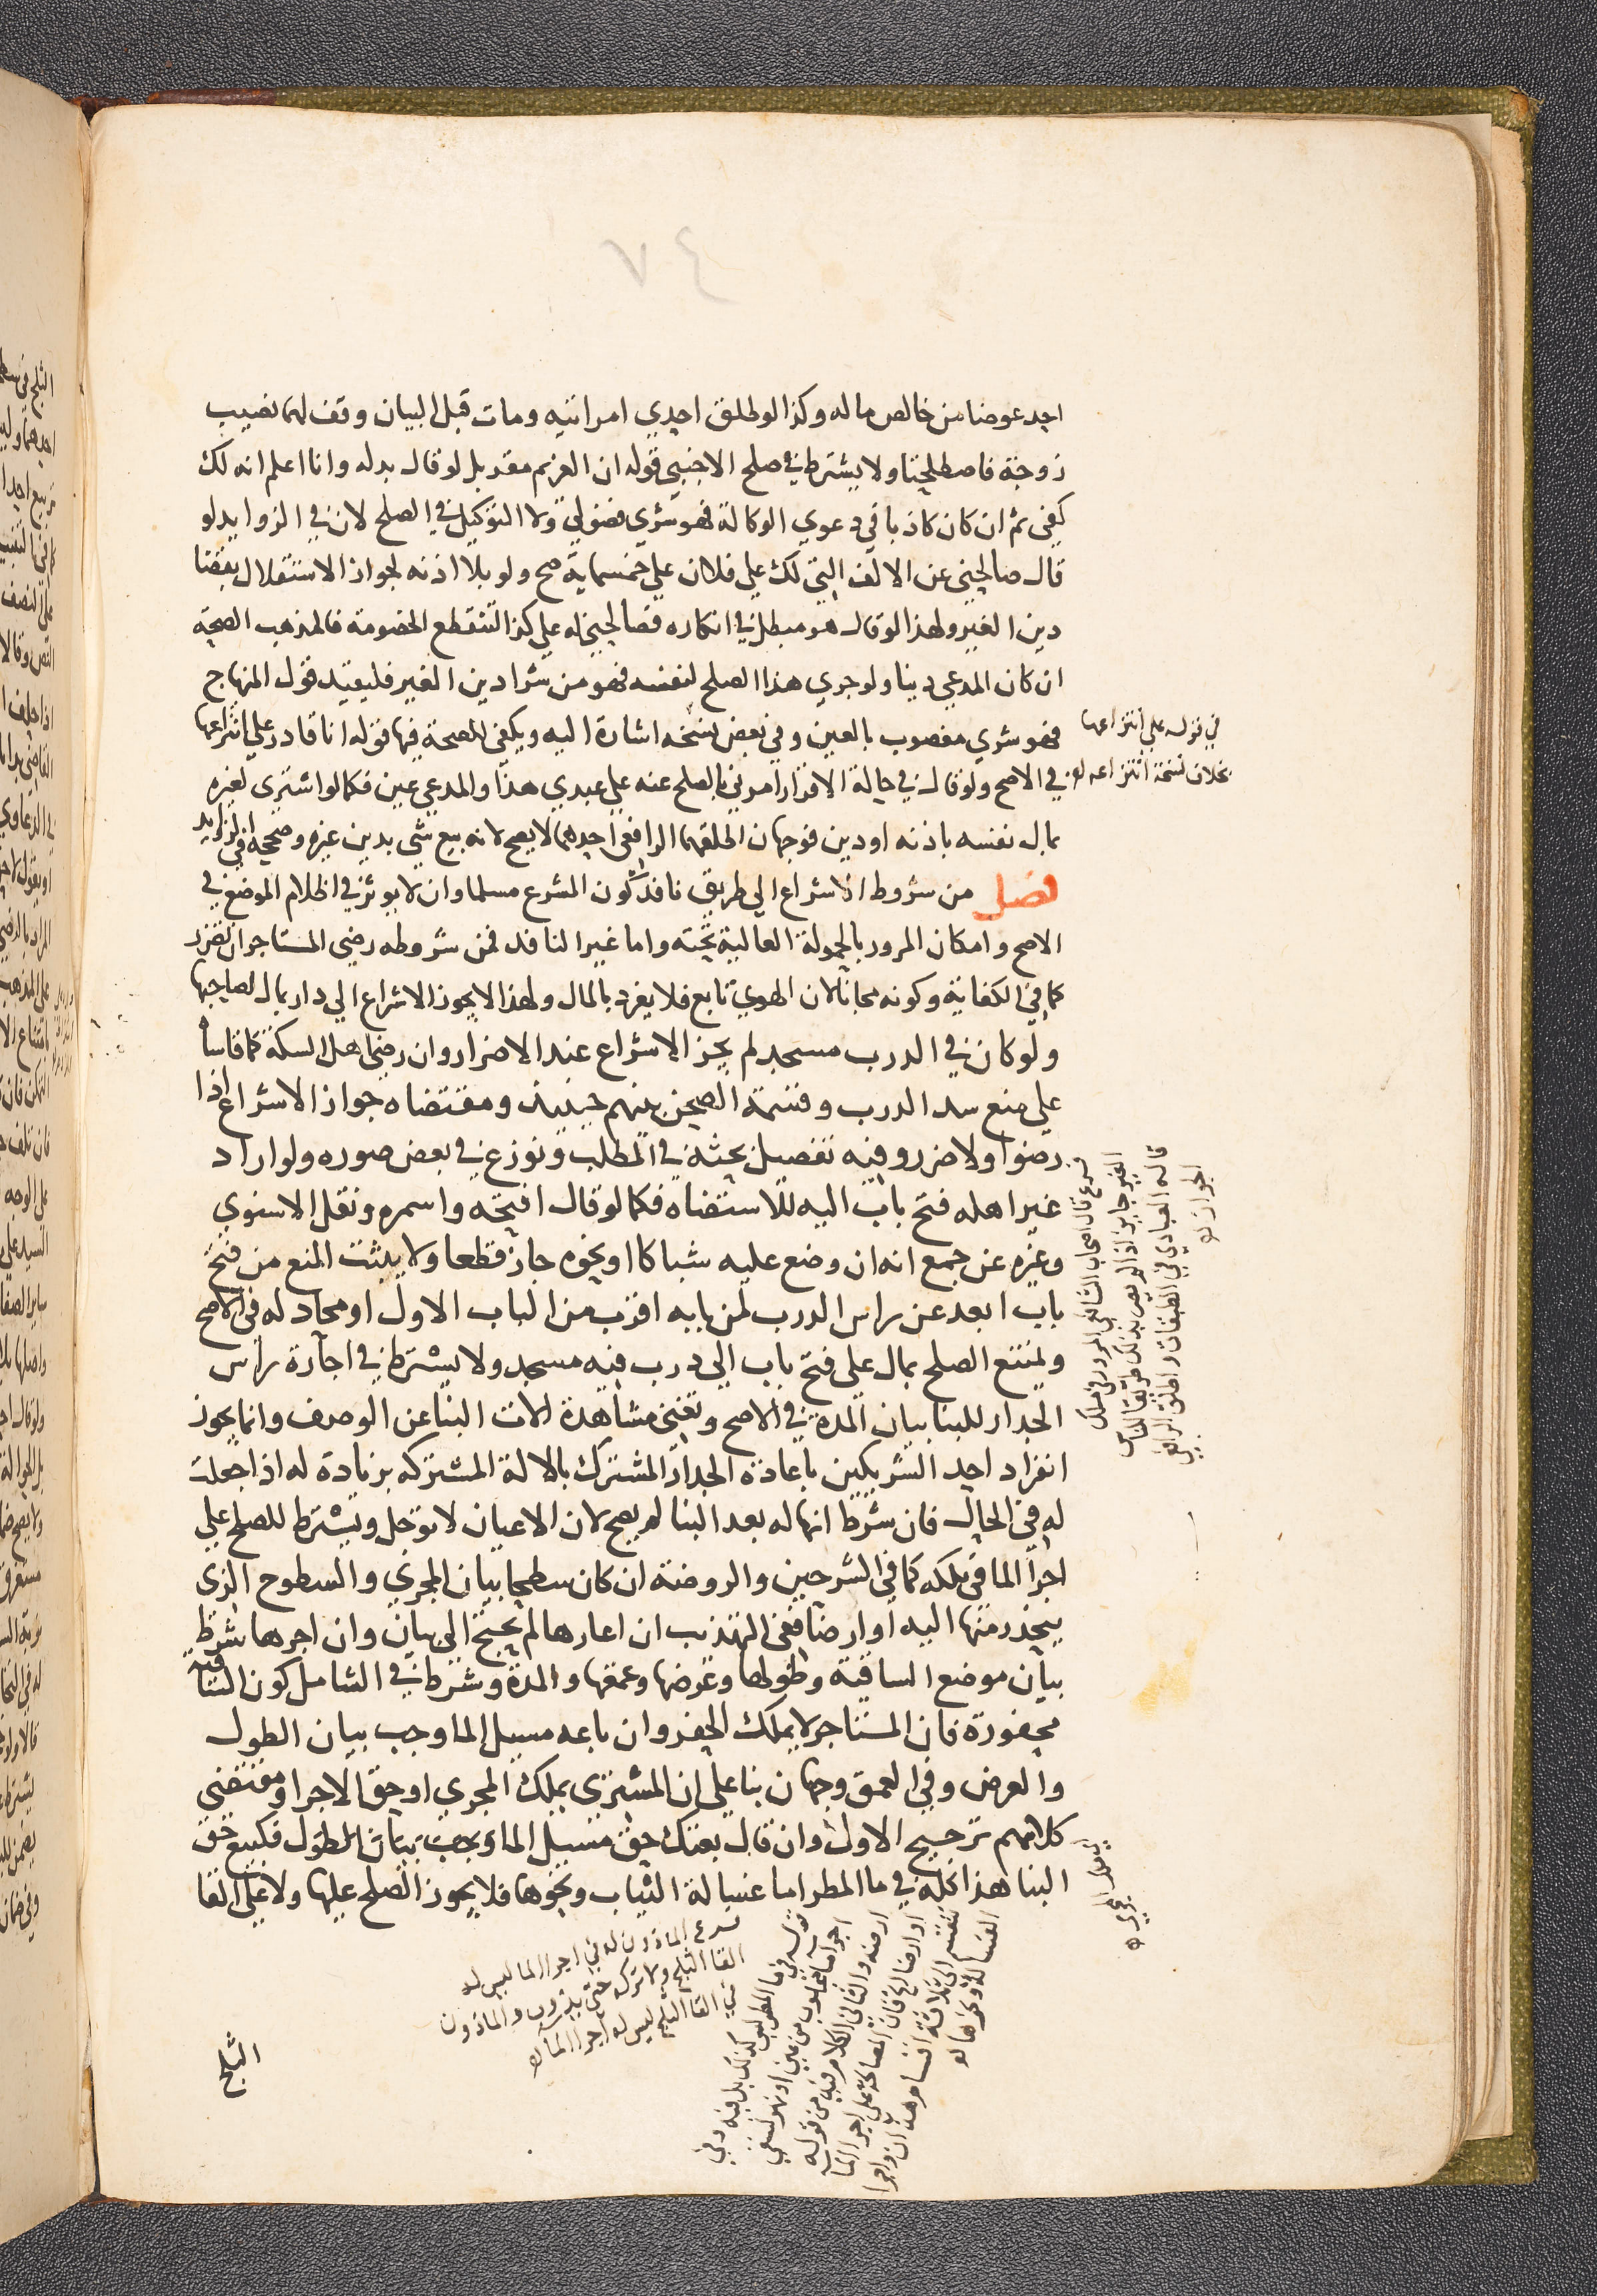 ٧٤
احد عوضا من خالص ماله وكذا لو طلق احدي امراتيه ومات قبل البيان وقف لهما نصيب
زوجة فاصطلحتا ولا يشترط في صلح الاجنبي قوله ان الغريم مقر بل لو قال بدله وانا اعلم انه لك
كفي ثم ان كان كاذبا في دعوي الوكالة فهو شري فضولي ولا التوكيل في الصلح لان في الزوايد لو
قال صالحني عن الالف التي لك علي فلان علي خمسماية صح ولو بلا اذنه لجواز الاستقلال بقضا
دين الغير ولهذا لو قال هو مبطل في انكاره فصالحني له علي كذا لتنقطع الخصومة فالمذهب الصحة
ان كان المدعي دينا ولو جري هذا الصلح لنفسه فهو من شرا دين الغير فليقيد قول المنهاج
فهو شري مغصوب بالعين وفي بعض نسخه اشارة اليه ويكفي للصحة فيها قوله انا قادر علي انتزاعها
في الاصح ولو قال في حالة الاقرار امرني بالصلح عنه علي عبدي هذا والمدعي عين فكما لو اشتري لغيره
بمال نفسه باذنه او دين فوجهان اطلقهما الرافعي احدهما لا يصح لانه بيع شي بدين غيره وصححه في الزوايد
فصل من شروط الاشراع الي طريق نافذ كون المشرع مسلما وان لا يوثر في اظلام الموضع في
الاصح وامكان المرور بالحمولة العالية تحته واما غير النافذ فمن شروطه رضي المستاجر ان تضرر
كما في الكفاية وكونه مجانا لان الهوي تابع فلا يفرد بالمال ولهذا لا يجوز الاشراع الي دار بمال لصاحبها
ولو كان في الدرب مسجد لم يجز الاشراع عند الاضرار وان رضي اهل السكة كما قاساه
علي منع سد الدرب وقسمة الصحن بينهم حينيذ ومقتضاه جواز الاشراع اذا
رضوا ولا ضرر وفيه تفصيل بحثه في المطلب ونوزع في بعض صوره ولو اراد
غير اهله فتح باب اليه للاستضاه فكما لو قال افتحه واسمره ونقل الاسنوي
وغيره عن جمع انه ان وضع عليه شباكا او نحوه جاز قطعا ولا يثبت المنع من فتح
باب ابعد عن راس الدرب لمن بابه اقرب من الباب الاول او محاد له في الاصح
ويمتنع الصلح بمال علي فتح باب الي درب فيه مسجد ولا يشترط في اجارة راس
الجدار للبنا بيان المدة في الاصح وتغني مشاهدة الات البنا عن الوصف وانما يجوز
انفراد احد الشريكين باعادة الجدار المشترك بالالة المشتركه بزيادة له اذا جعلت
له في الحال فان شرط انها له بعد البنا لم يصح لان الاعيان لا توجل ويشترط للصلح علي
اجرا الما في ملكه كما في الشرحين والروضة ان كان سطحا بيان المجري والسطوح الذي
ينحدر منها اليه او ارضا ففي التهذيب ان اعارها لم يحتج الي بيان وان اجرها شرط
بيان موضع الساقية وطولها وعرضها وعمقها والمدة وشرط في الشامل كون الساقية
محفورة فان المستاجر لا يملك الحفر وان باعه مسيل الما وجب بيان الطول
والعرض وفي العمق وجهان بنا علي ان المشتري يملك المجري او حق الاجرا ومقتضي
كلامهم ترجيح الاول وان قال بعتك حق مسيل الما وجب بيان الطول فكبيع حق
البنا هذا كله في ما المطر اما غسالة الثياب ونحوها فلا يجوز الصلح عليها ولا علي القا
الثلج
في قوله علي انتزاعها
بخلاف نسخة انتزاعه له
فرع قال اصحاب الشافعي المرور في ملك
الغير جايز اذا لم يصر بذلك طريقا للناس
قاله العبادي في الطبقات واطلق الرافعي
الجواز له
فرع الماذون له في اجرا الما ليس له
القا الثلج ولا تركه حتي يذوب والماذون
في القا الثلج ليس له اجرا الما له